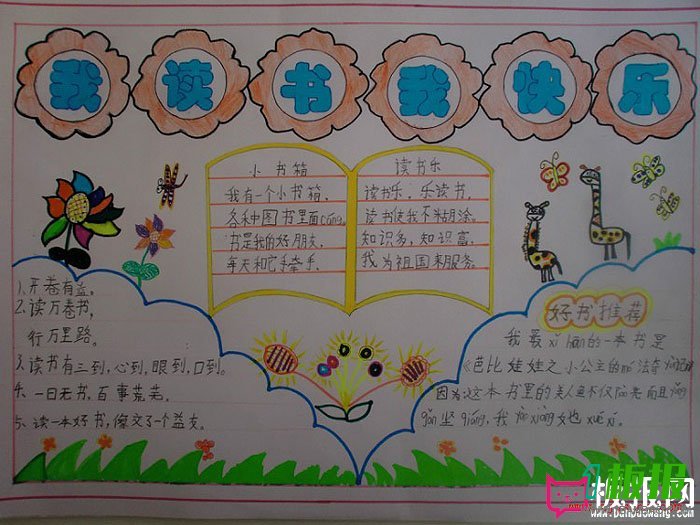 我读书我快乐
小书箱
我有一个小书箱,
各种图书里面cáng。
书是我的好朋友,
每天和它手牵手。
读书乐
读书乐,乐读书,
读书使我不粘涂。
知识多,知识富,
我为祖国来服务。
1、开卷有益。
2、读万卷书,
行万里路。
3、读书有三到,心到,眼到,口到。
4、一日无书,百事荒芜。
5、读一本好书,像交了个益友。
好书推荐
我最xǐ huān的一本书是
《芭比娃娃之小公主的mó法奇
因为这本书里的美人鱼不仅 亮而且
坚qiáng,我 她 xué xí.
板报网
www.banbaowang.com